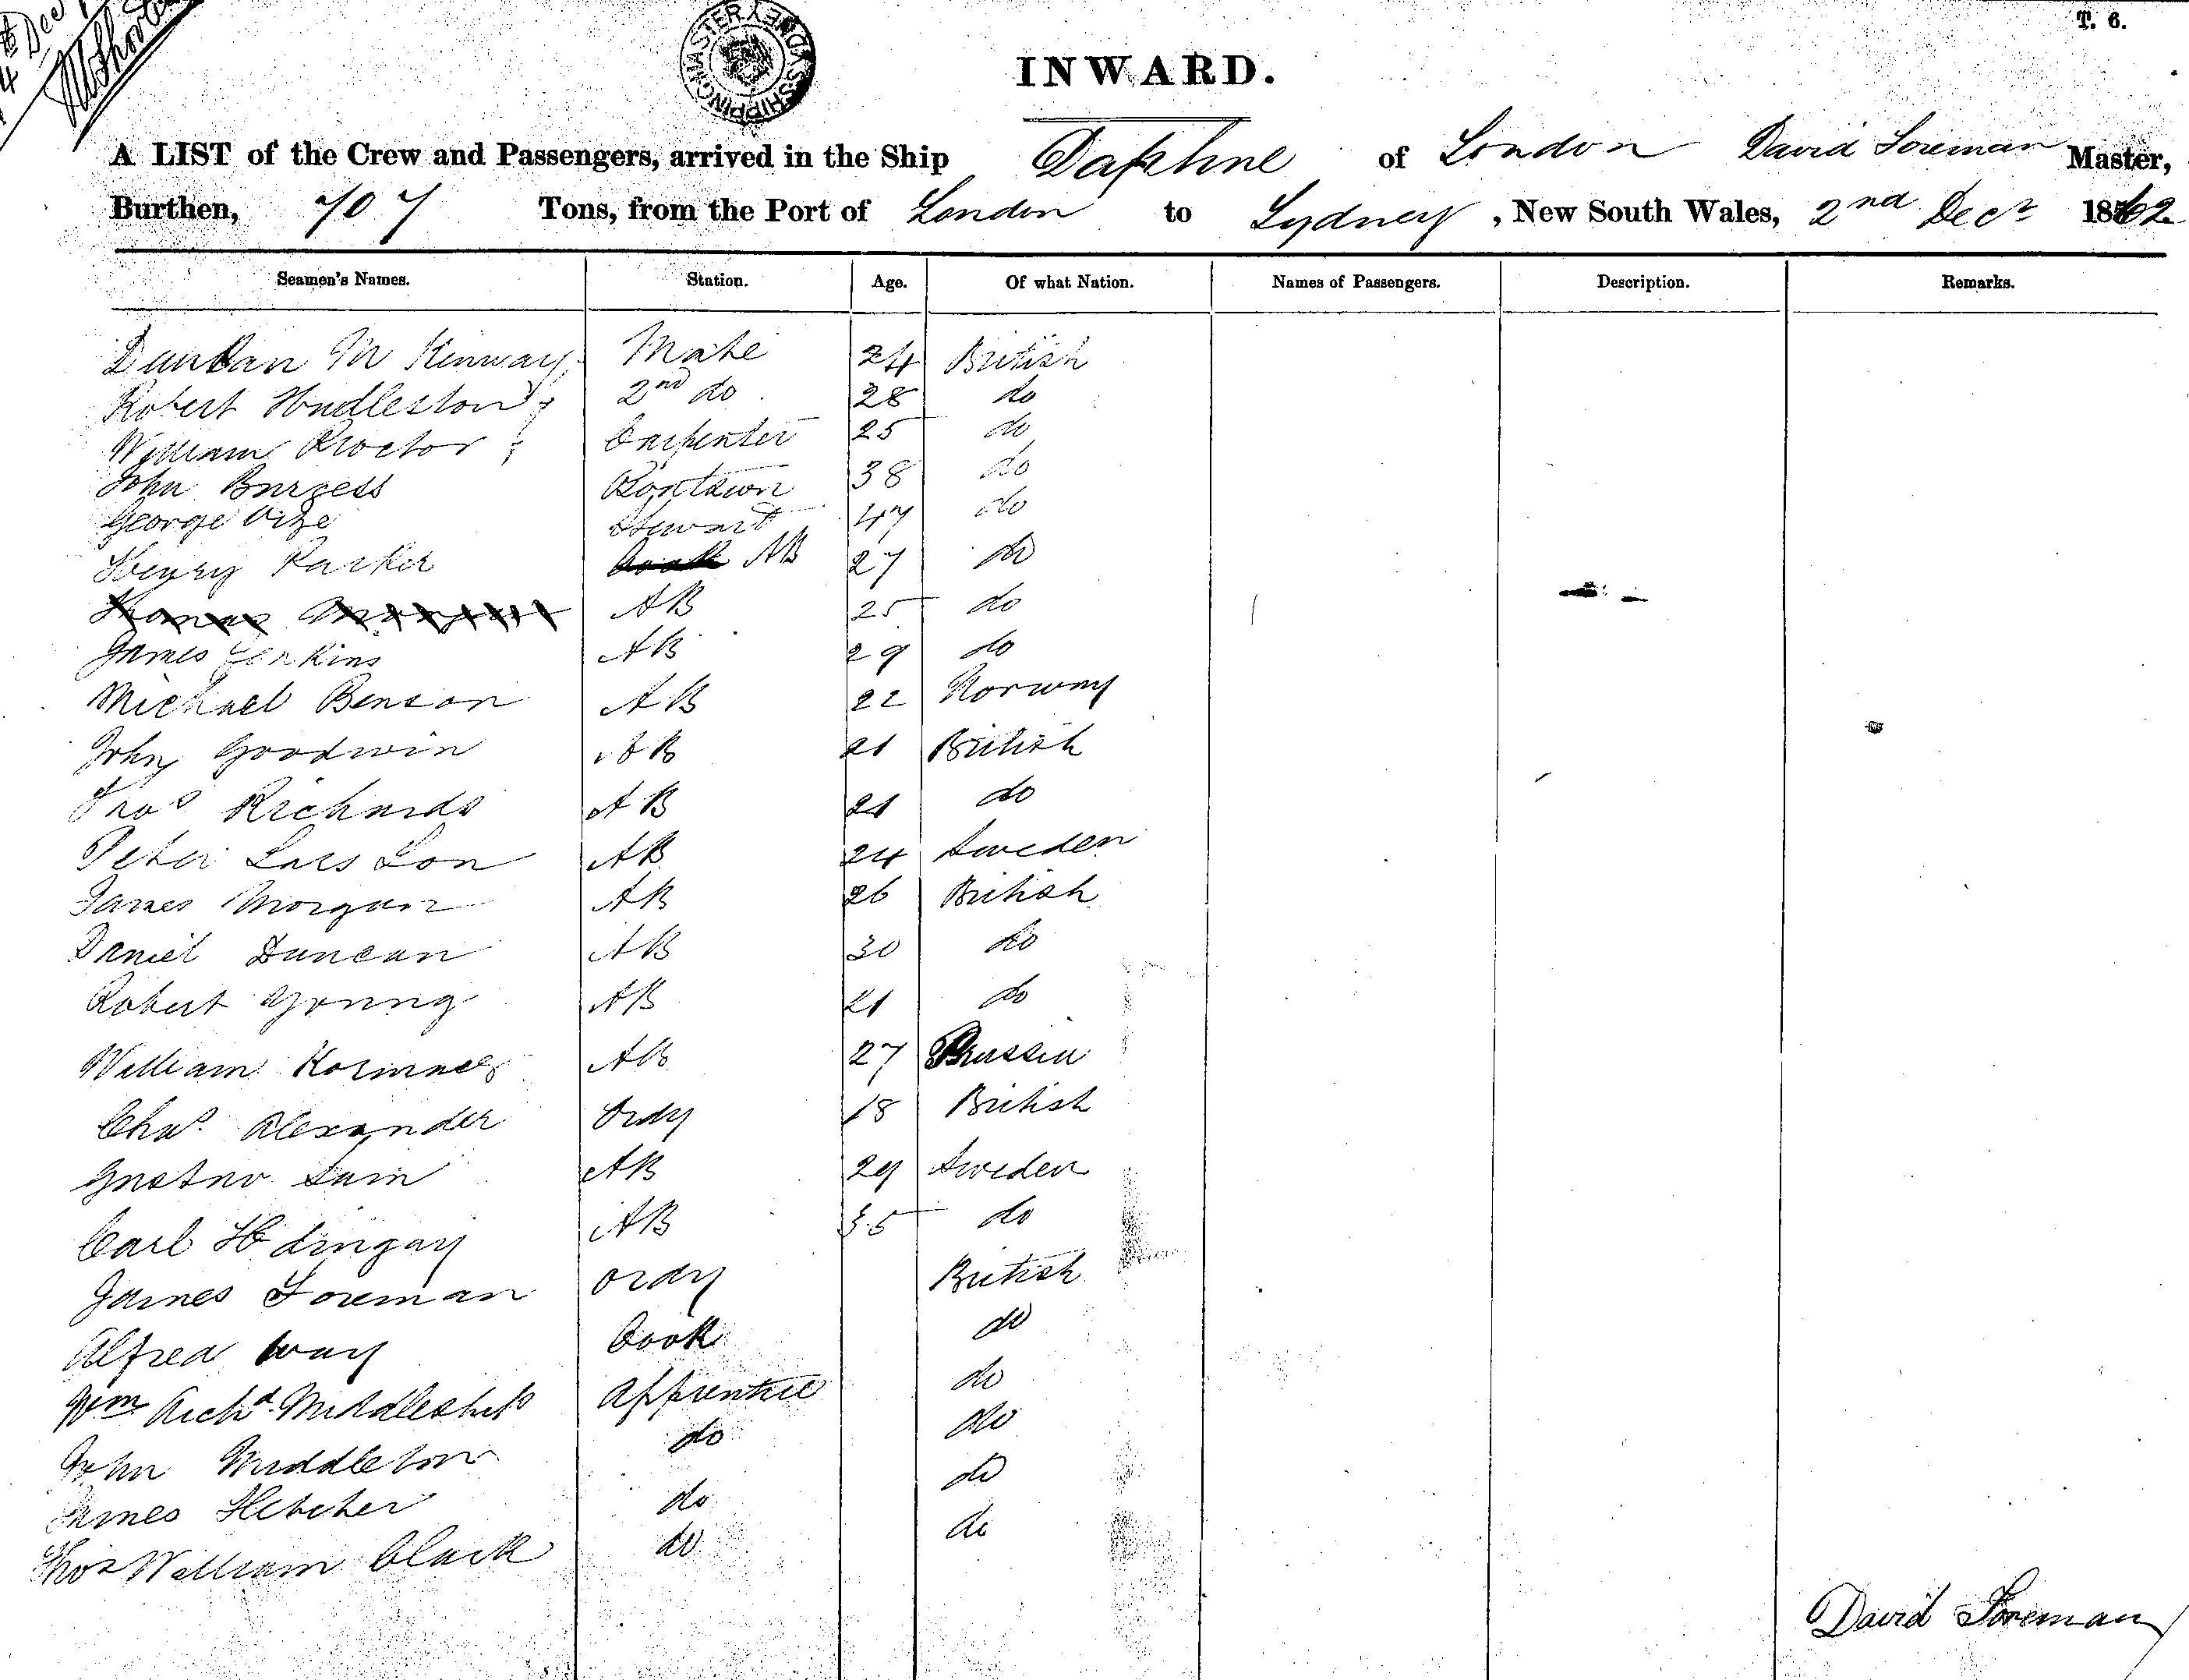 T. 6.
4 Dec
SHIPPING MASTER SYDNEY
INWARD.
A LIST of the Crew and Passengers, arrived in the Ship Daphne of London David Foreman Master,
Burthen, 707 Tons, from the Port of London to Sydney, New South Wales, 2nd Decr 1862
Seamen's Names. Station. Age. Of what Nation. Names of Passengers. Description. Remarks.
Duncan Mc Kenway Mate 24 British
Robert Hudleston 2nd do 28 do
William Proctor Carpenter 25 do
John Burgess 38 do
George Vize Stewart 47 do
Henry Parker Cook AB 27 do
Thomas AB 25 do
James Jenkins AB 29 do
Michael Benson AB 22 Norway
John Goodwin AB 21 British
Thos Richards AB 21 do
Peter Lars Son AB 24 Sweden
James Morgan AB 26 British
Daniel Duncan AB 30 do
Robert Young AB 21 do
William AB 27 Prussia
Chas. Alexander Ordy 18 British
Gustav AB 29 Sweden
Carl AB 35 do
James Foreman Ordy British
Alfred Way Cook do
Wm Richd Apprentice do
John Middleton do do
James Fletcher do do
Thos William Clark do do
David Foreman